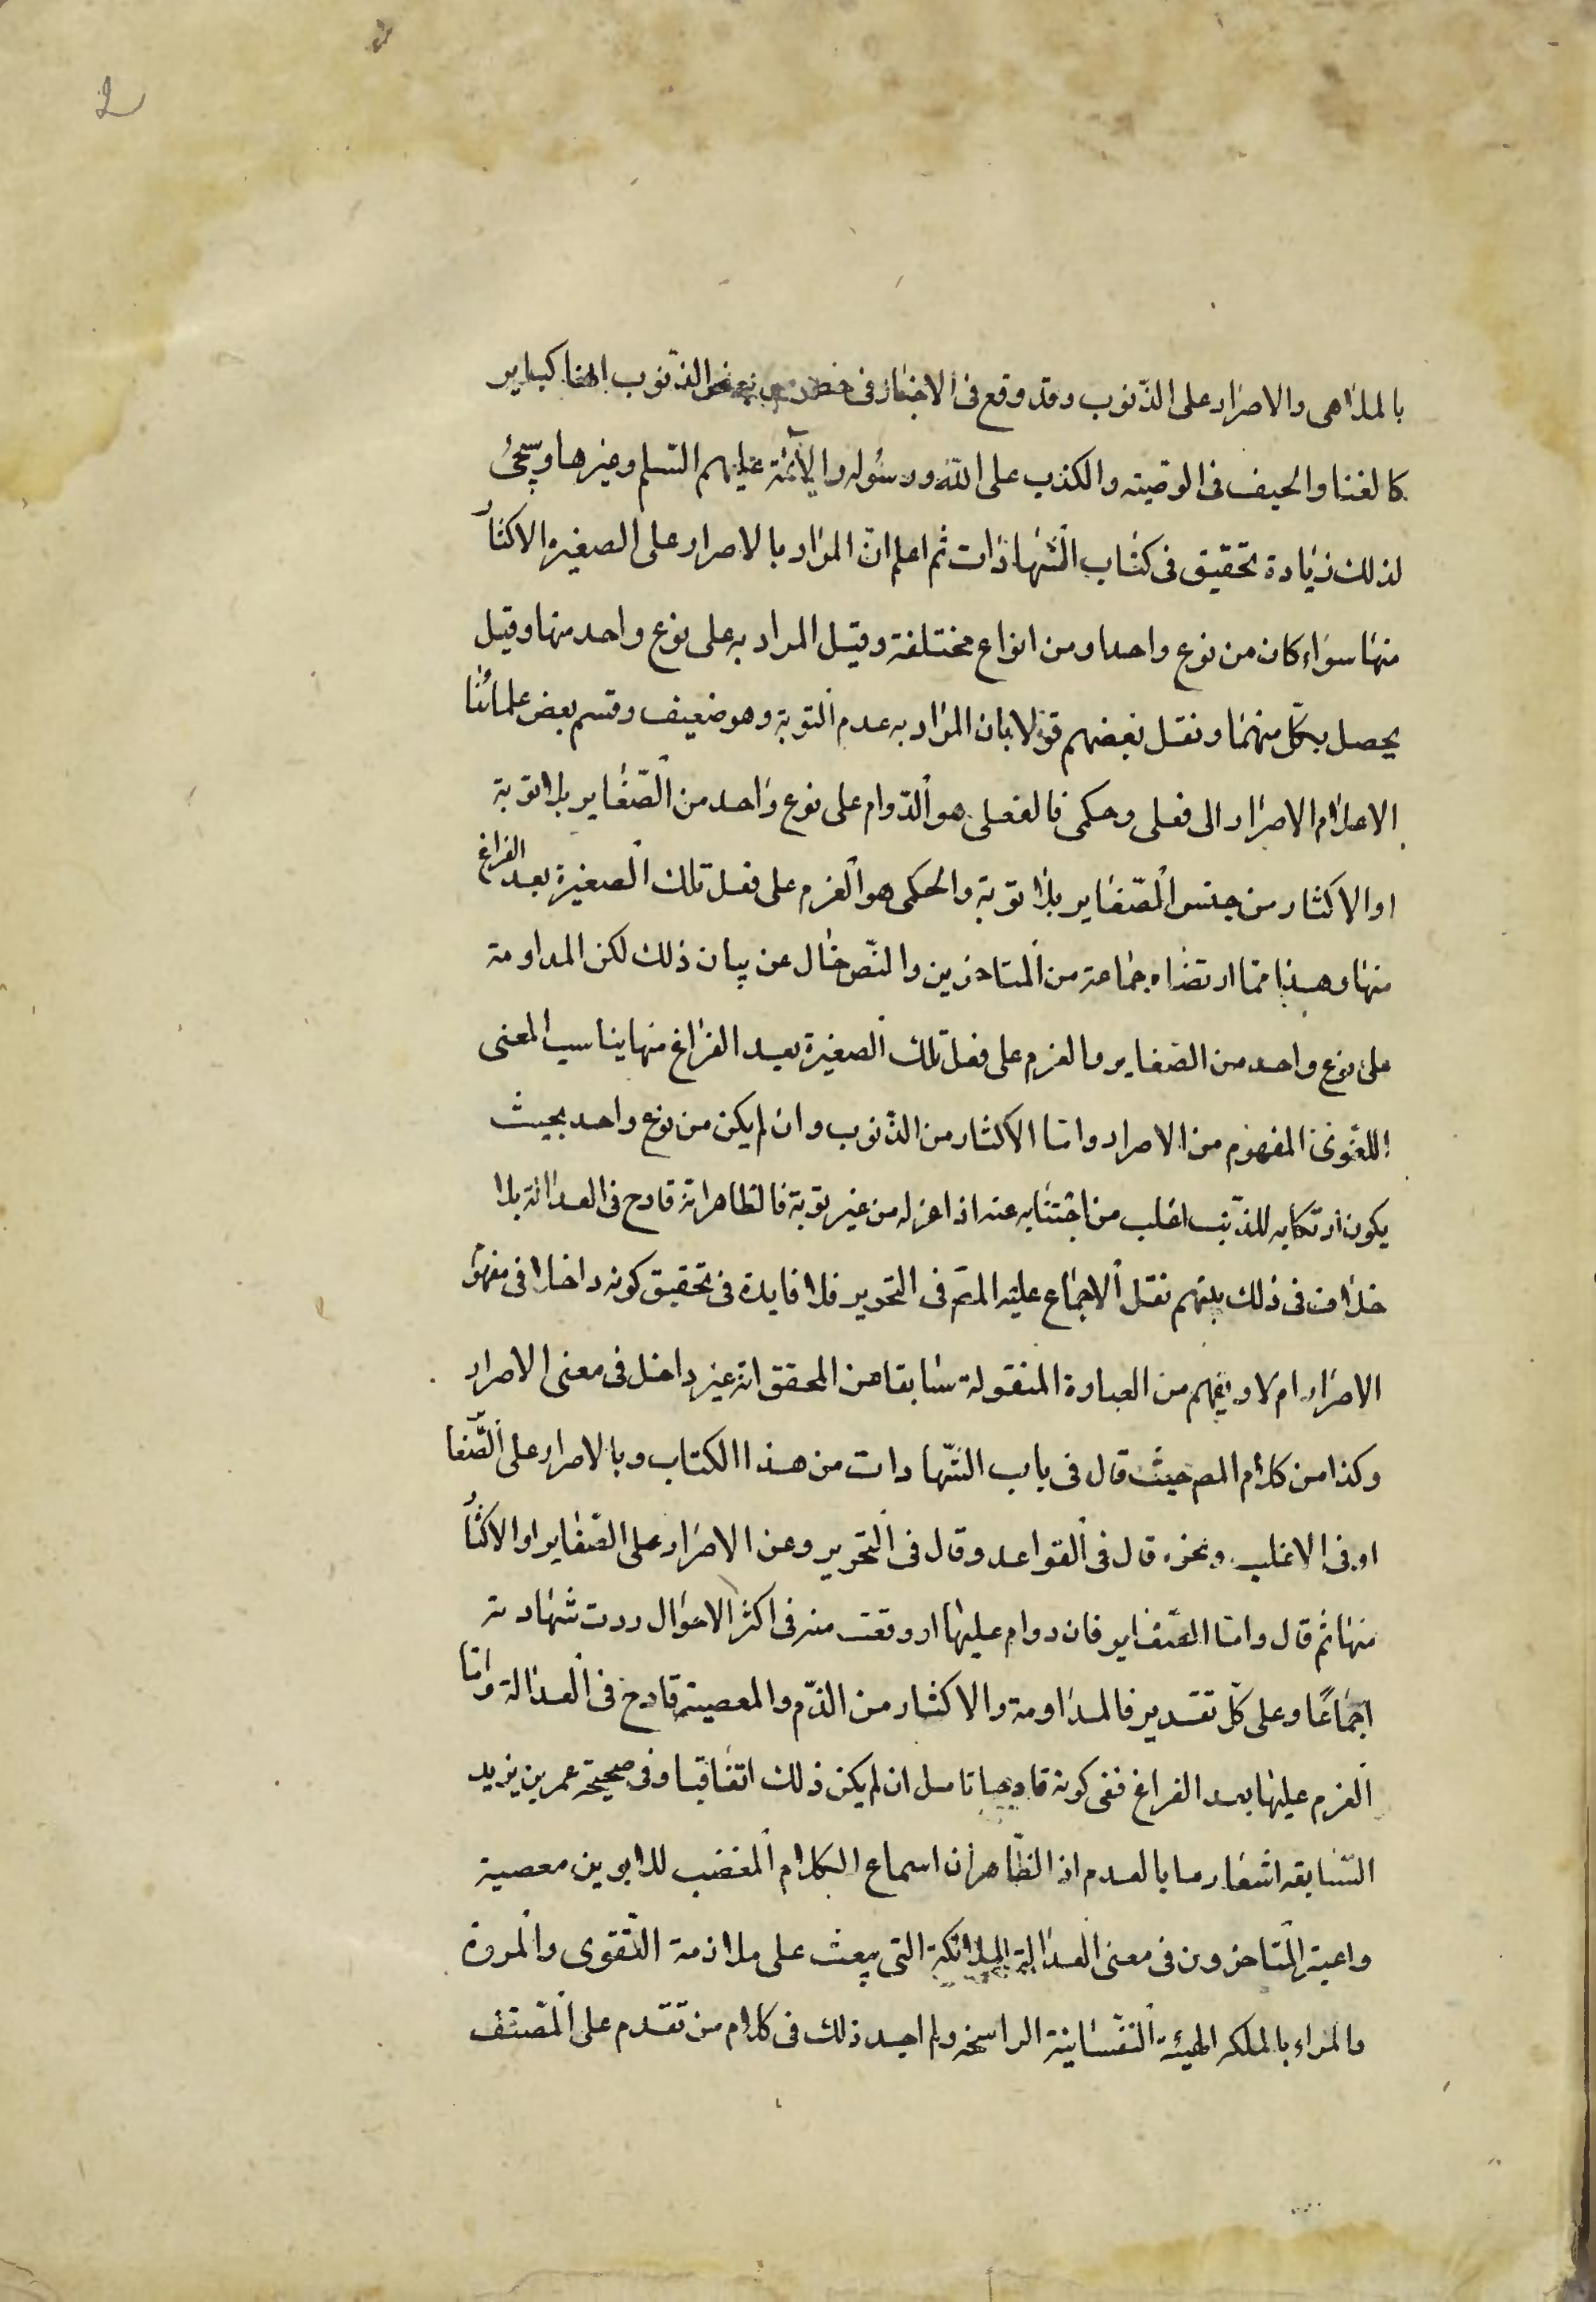 2
بالملاهى والاصرار على الذّنوب وقد وقع فى الاخبار فى خصوص بعض الذّنوب انها كباير
كالغنا والحيف فى الوصيّة والكذب على اللّه ورسوله والأئمّة عليهم السّلم وغيرها وسيجئ
لذلك زيادة تحقيق فى كتاب الشّهادات ثم اعلم انّ المراد بالاصرار على الصغيره الاكثا
منها سواء كان من نوع واحد او من انواع مختلفة وقيل المراد به على نوع واحد منها وقيل
يحصل بكلّ منهما ونقل بعضهم قولا بان المراد به عدم التوبة وهو ضعيف وقسم بعض علمائنا
الاعلام الاصرار الى فعلى وحكمى فالفعلى هو الدّوام على نوع واحد من الصّغاير بلا توبة
او الاكثار من جنس الصّغاير بلا توبة والحكمى هو العزم على فعل تلك الصغيرة بعد الفراغ
منها وهذا ممّا ارتضاه جماعة من المتاخرين والنّص خال عن بيان ذلك لكن المداومة
على نوع واحد من الصّغاير والعزم على فعل تلك الصغيرة بعد الفراغ منها يناسب المعنى
اللغوىّ المفهوم من الاصرار وامّا الاكثار من الذّنوب وان لم يكن من نوع واحد بحيث
يكون ارتكابه للذّنب اغلب من اجتنابه عنه اذا عزله من غير توبة فالظاهر انّه قادح فى العدالة بلا
خلاف فى ذلك بينهم نقل الاجماع عليه المصّ فى التحرير فلا فايدة فى تحقيق كونه داخلا فى مفهو
الاصرار ام لا ويفهم من العبارة المنقولة سابقا من المحقق انّه غير داخل فى معنى الاصرار
وكذا من كلام المص حيث قال فى باب الشّهادات من هذا الكتاب وبالاصرار على الصّغا
او فى الاغلب ونحوه قال فى القواعد وقال فى التحرير وعن الاصرار على الصّغاير او الاكثا
منها ثم قال وامّا الصّغاير فان دوام عليها او وقعت منه فى اكثر الاحوال ردت شهادته
اجماعًا وعلى كلّ تقدير فالمداومة والاكثار من الذّم والمعصية قادح فى العدالة وامّا
العزم عليها بعد الفراغ ففى كونه قادحا تامل ان لم يكن ذلك اتفاقيا وفى صحيحة عمر بن يزيد
السّابقه اشعار ما بالعدم اذ الظّاهر ان اسماع الكلام المغضب للابوين معصية
واعتبر المتاخرون فى معنى العدالة الملكة التى يبعث على ملازمة التّقوى والمروة
والمراد بالملكه الهيئة النّفسانية الراسخه ولم اجد ذلك فى كلام من تقدم على المصّنف